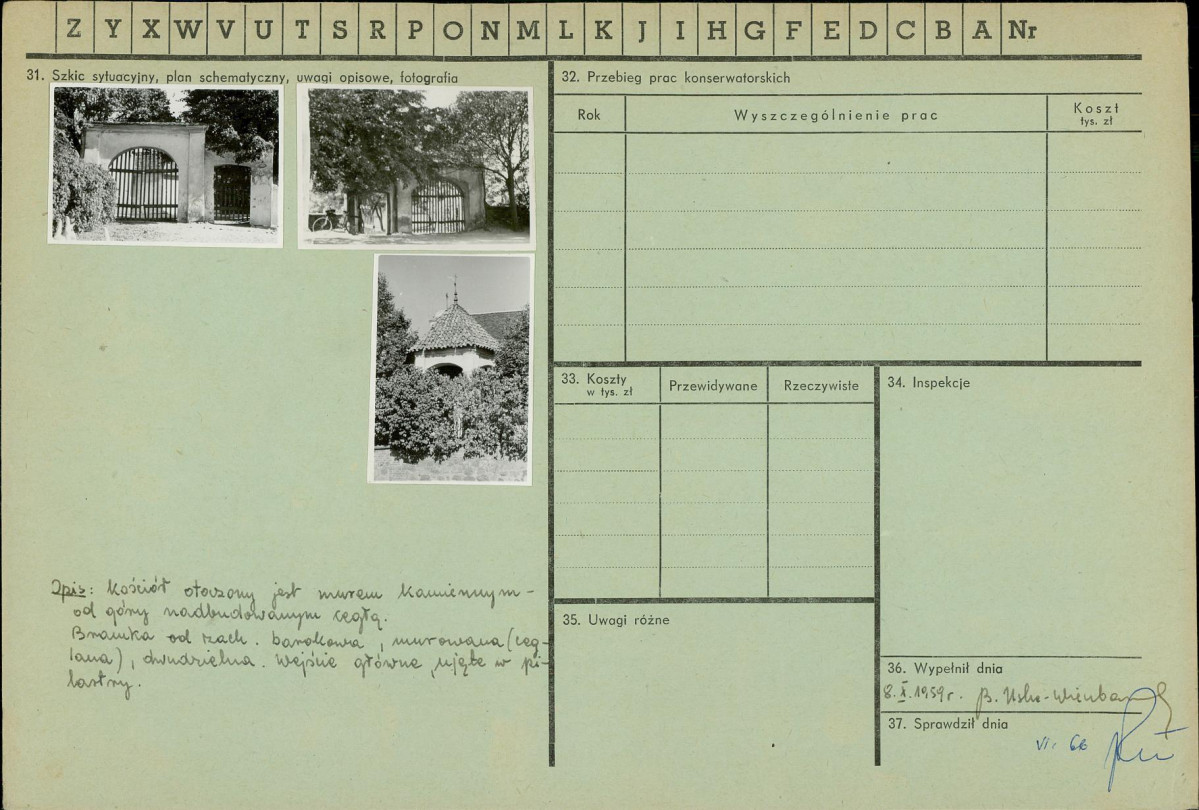 Z Y X W V U T S R P O N M L K J I H G F E D C B A Nr
31. Szkic sytuacyjny, plan schematyczny, uwagi opisowe, fotografia
Opis: Kościół otoczony jest murem kamiennym –
od góry nadbudowanym cegłą.
Bramka od zach. barokowa, murowana (ceg-
lana), dwudzielna. Wejście główne ujęte w pi-
lastry.
32. Przebieg prac konserwatorskich
Rok Wyszczególnienie prac Koszt
tys. zł
33. Koszty
w tys. zł
Przewidywane
Rzeczywiste
34. Inspekcje
35. Uwagi różne
36. Wypełnił dnia
8. X. 1959 r. B.
37. Sprawdził dnia
VI. 66